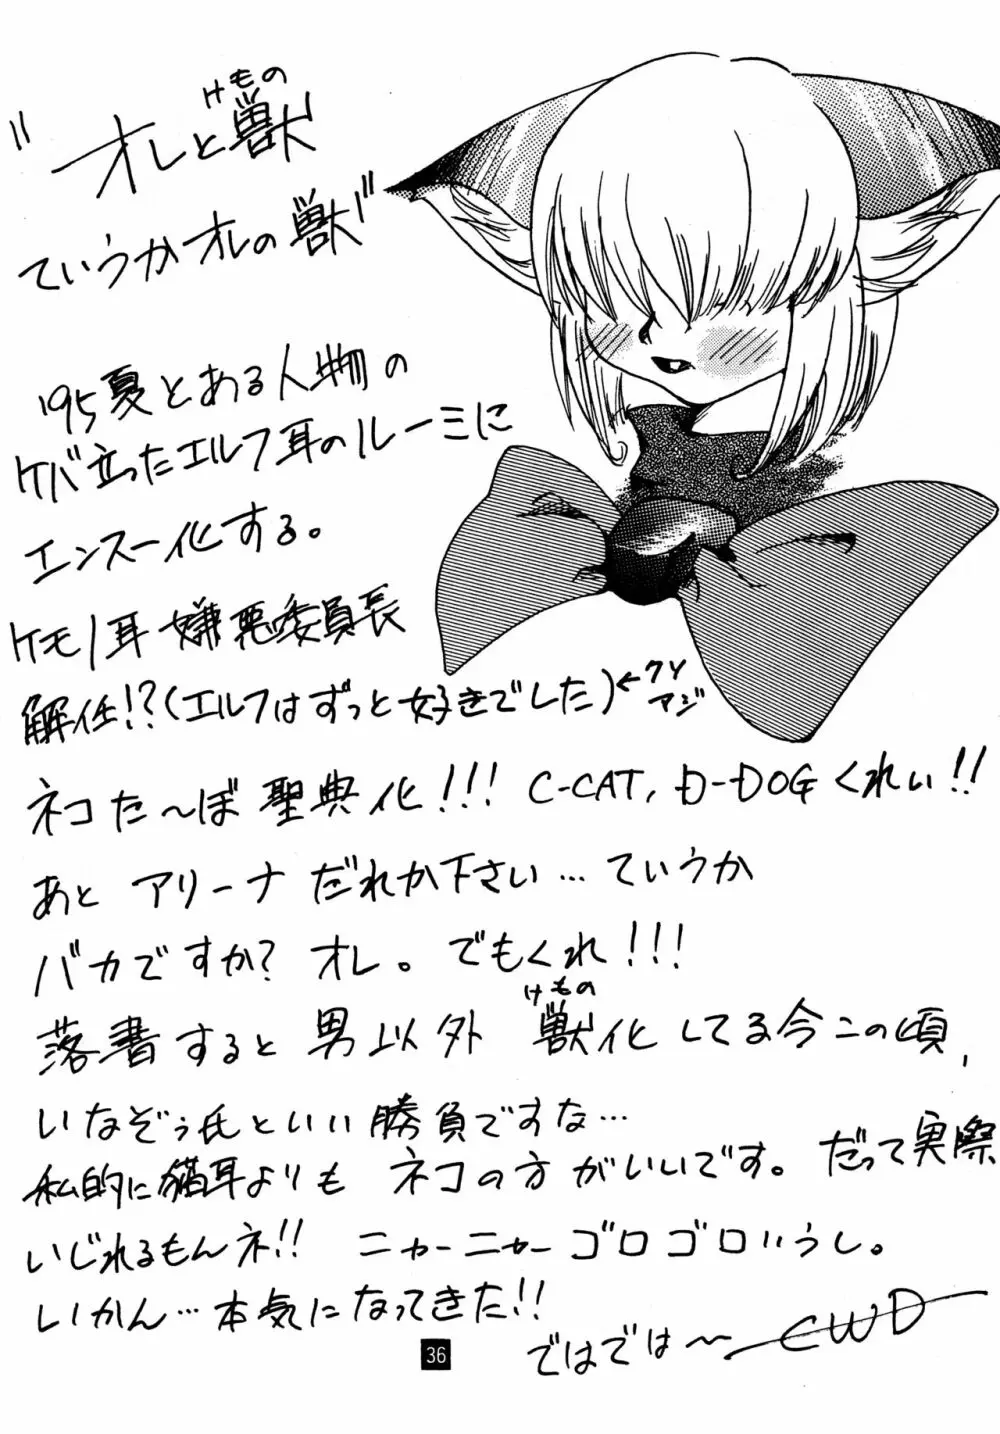 けもの
"オレと獣
ていうかオレの獣"
'95夏とある人物の
ケバ立ったエルフ耳のルーミに
エンスー化する。
ケモノ耳嫌悪委員長
解任!?(エルフはずっと好きでした)←クソ
マジ
ネコた〜ぼ聖典化!!! C-CAT, D-DOGくれい!!
あと アリーナ だれか下さい…ていうか
バカですか? オレ。でもくれ!!!
けもの
落書すると男以外 獣化してる今この頃,
いなぞぅ氏といい勝負ですな…
私的に猫耳よりも ネコの方がいいです。だって実際
いじれるもんネ!! ニャーニャーゴロゴロいうし。
いかん…本気になってきた!!
ではでは〜 CWD
36